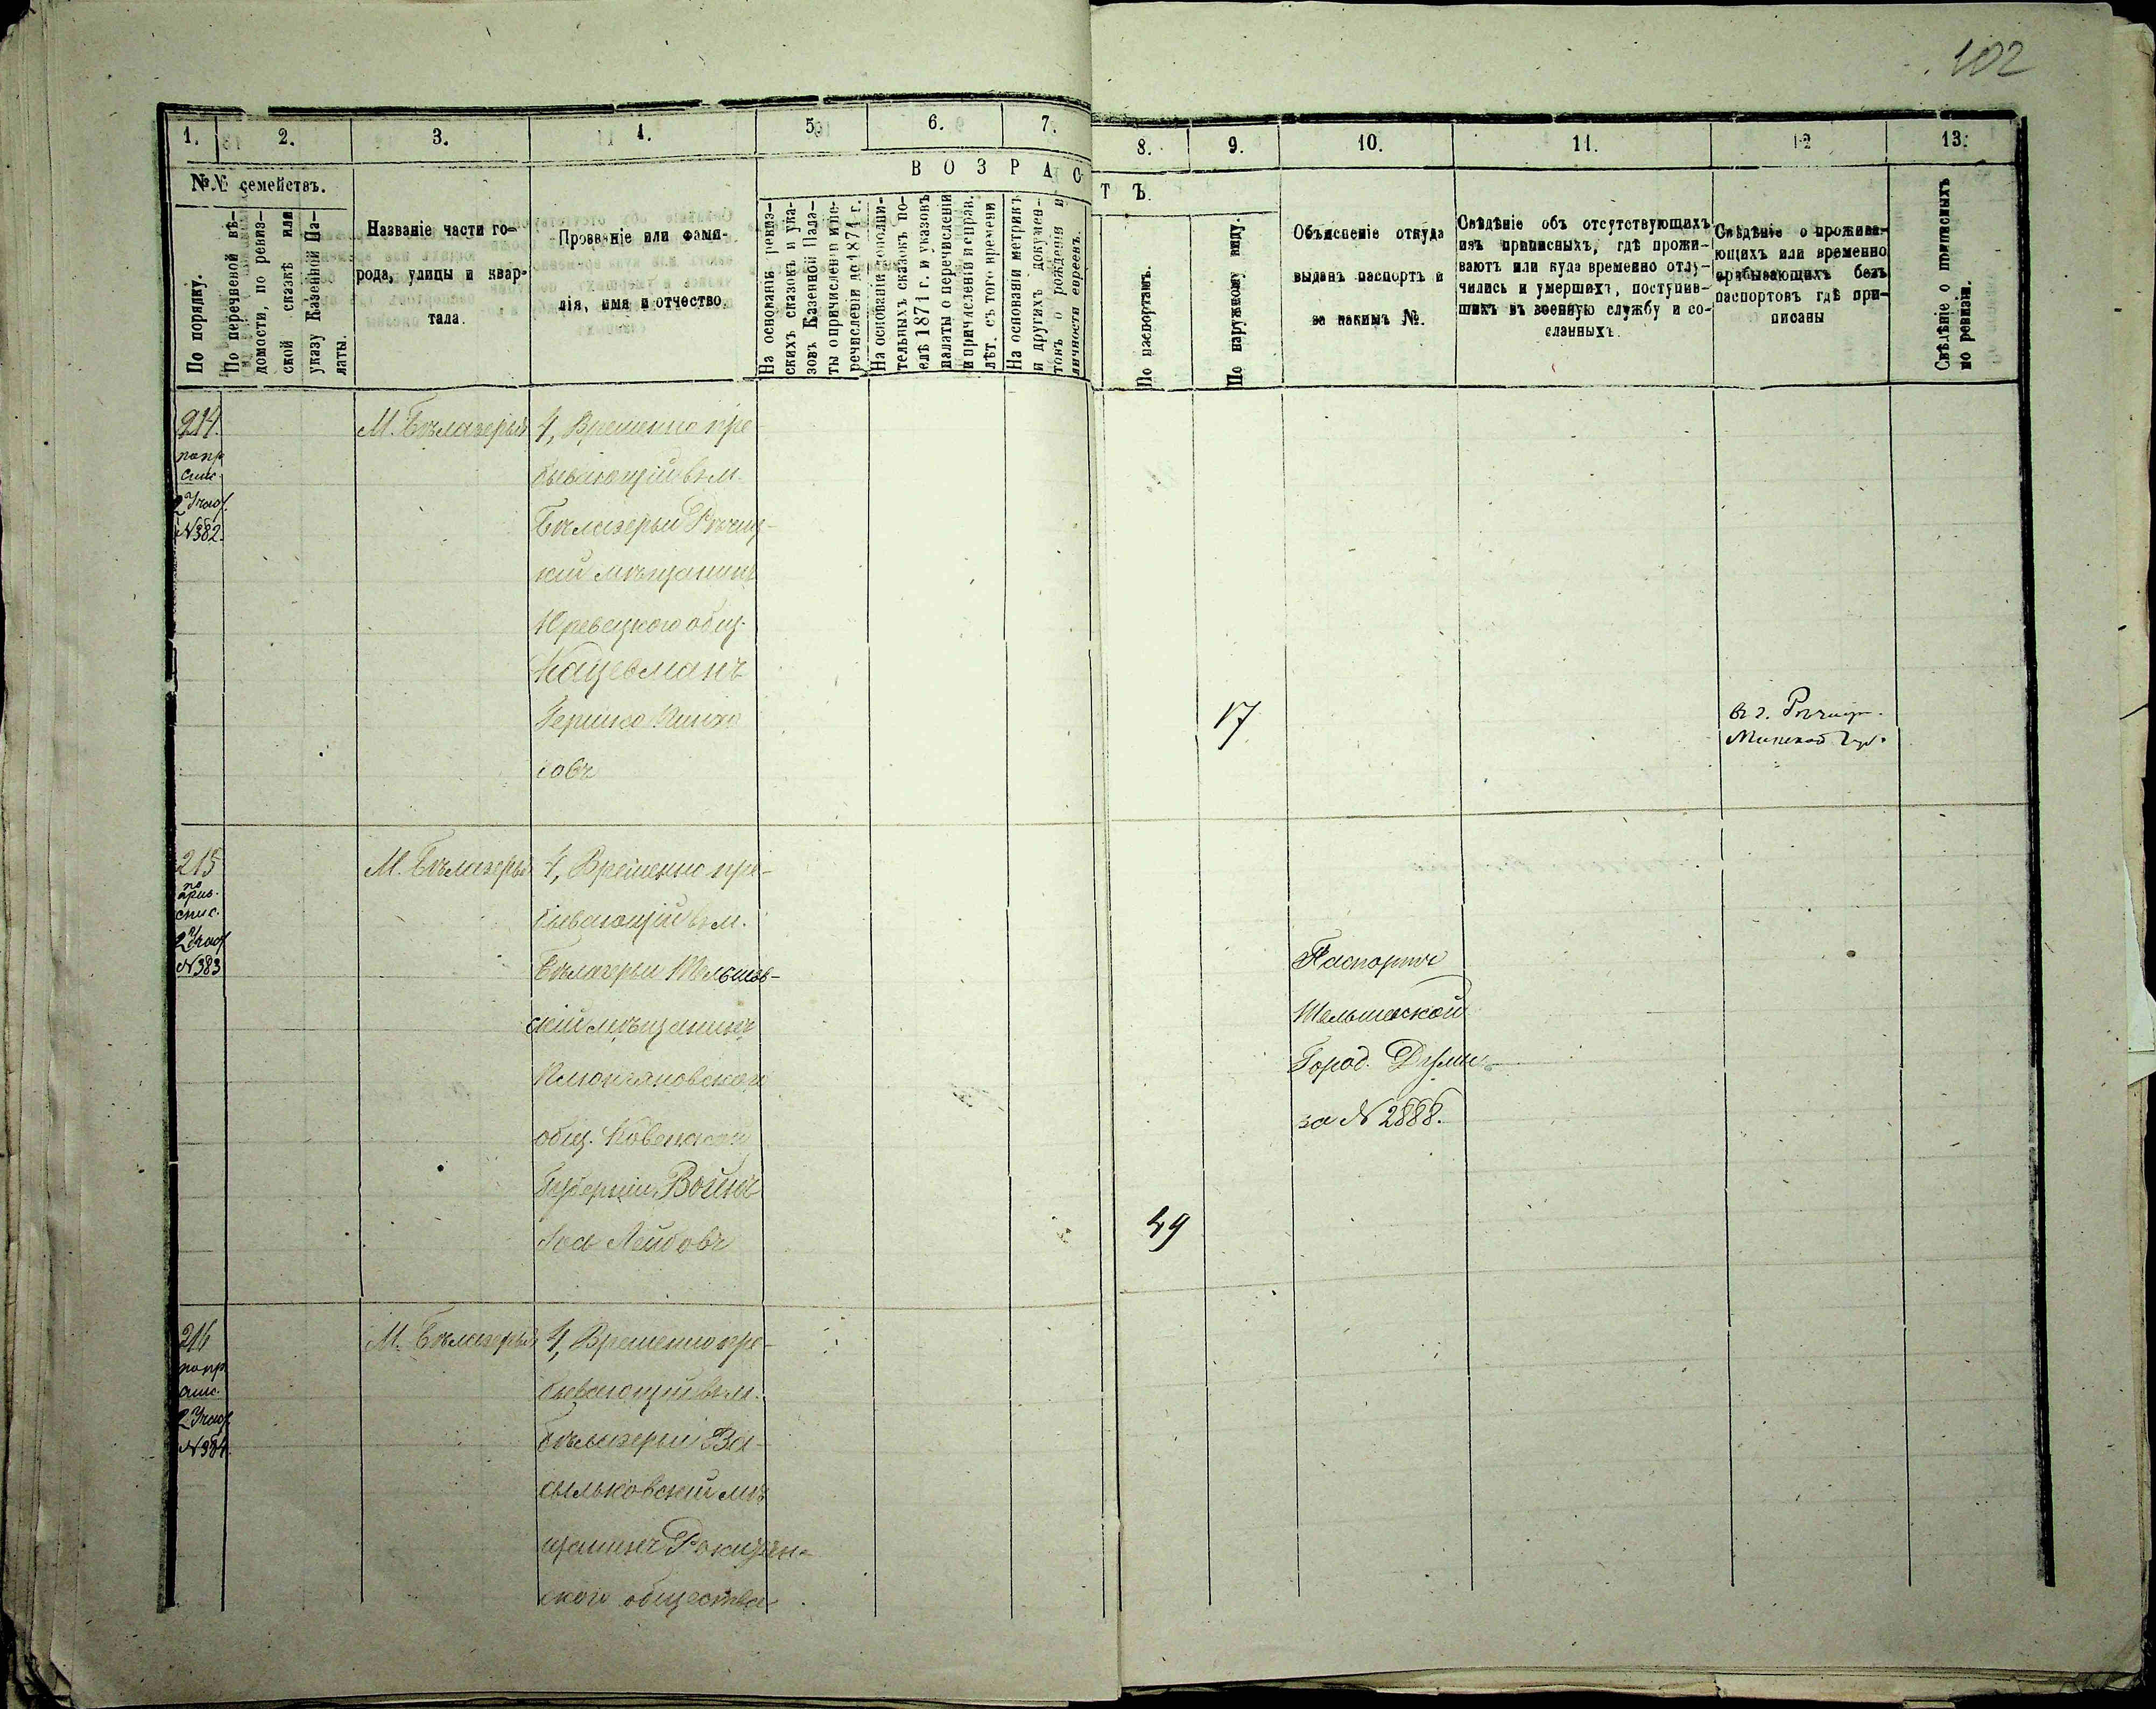 102
1. 2. 3. 4. 5. 6. 7. 8. 9. 10. 11. 12 13.
№№ семействъ.
По порядку.
По перечневой вѣ-
домости, по ревиз-
ской сказкѣ или
указу Казенной Па-
латы.
Названіе части го-
рода, улицы и квар-
тала.
Прозваніе или фами-
лія, имя и отчество.
ВОЗРАСТЪ.
На основаніи ревиз-
скихъ сказокъ и ука-
зовъ Казенной Пала-
ты о причисленіи и пе-
речисленіи до 1874 г.
На основаніи дополни-
тельныхъ сказокъ по-
слѣ 1874 г. и указовъ
палаты о перечисленіи
и причисленіи исправ.
лѣт. съ того времени
На основаніи метрикъ
и другихъ докумен-
товъ о рожденіи и
личности евреевъ.
По паспортамъ.
По наружному виду.
Объясненіе откуда
выданъ паспортъ и
за какимъ №.
Свѣдѣніе объ отсутствующихъ
изъ приписныхъ, гдѣ прожи-
ваютъ или куда временно отлу-
чились и умершихъ, поступив-
шихъ въ военную службу и со-
сланныхъ.
Свѣдѣніе о прожива-
ющихъ или временно
пребывающихъ безъ
паспортовъ гдѣ при-
писаны
Свѣдѣніе о приписныхъ
по ревизіи.
214.
по пр
спис.
2 Учас.
№ 382.
М. Бѣлозерье
4, Временно пре
бывающій въ м.
Бѣлозерьи Рѣчиц-
кій мѣщанинъ
Юревецкого общ.
Кацевманъ
Гершко Пинхо
совъ
17
въ г. Рѣчиц.
Минской губ.
215
по
приз.
спис.
2 Учас.
№ 383
М. Бѣлозерье
4, Временно пре-
бывающій въ м.
Бѣлозерьи Тельшев-
скій мѣщанинъ
общ. Ковенской
Губерніи Войнъ
Лейбовъ
49
Паспортъ
Тельшевской
Город. Думы
за № 2888.
216
по пр.
спис.
2 Учас.
№ 384.
М. Бѣлозерье
4, Временно пре-
бывающій въ м.
Бѣлозерьи Ва-
сыльковскій мѣ
щанинъ Рокитян-
ского общества